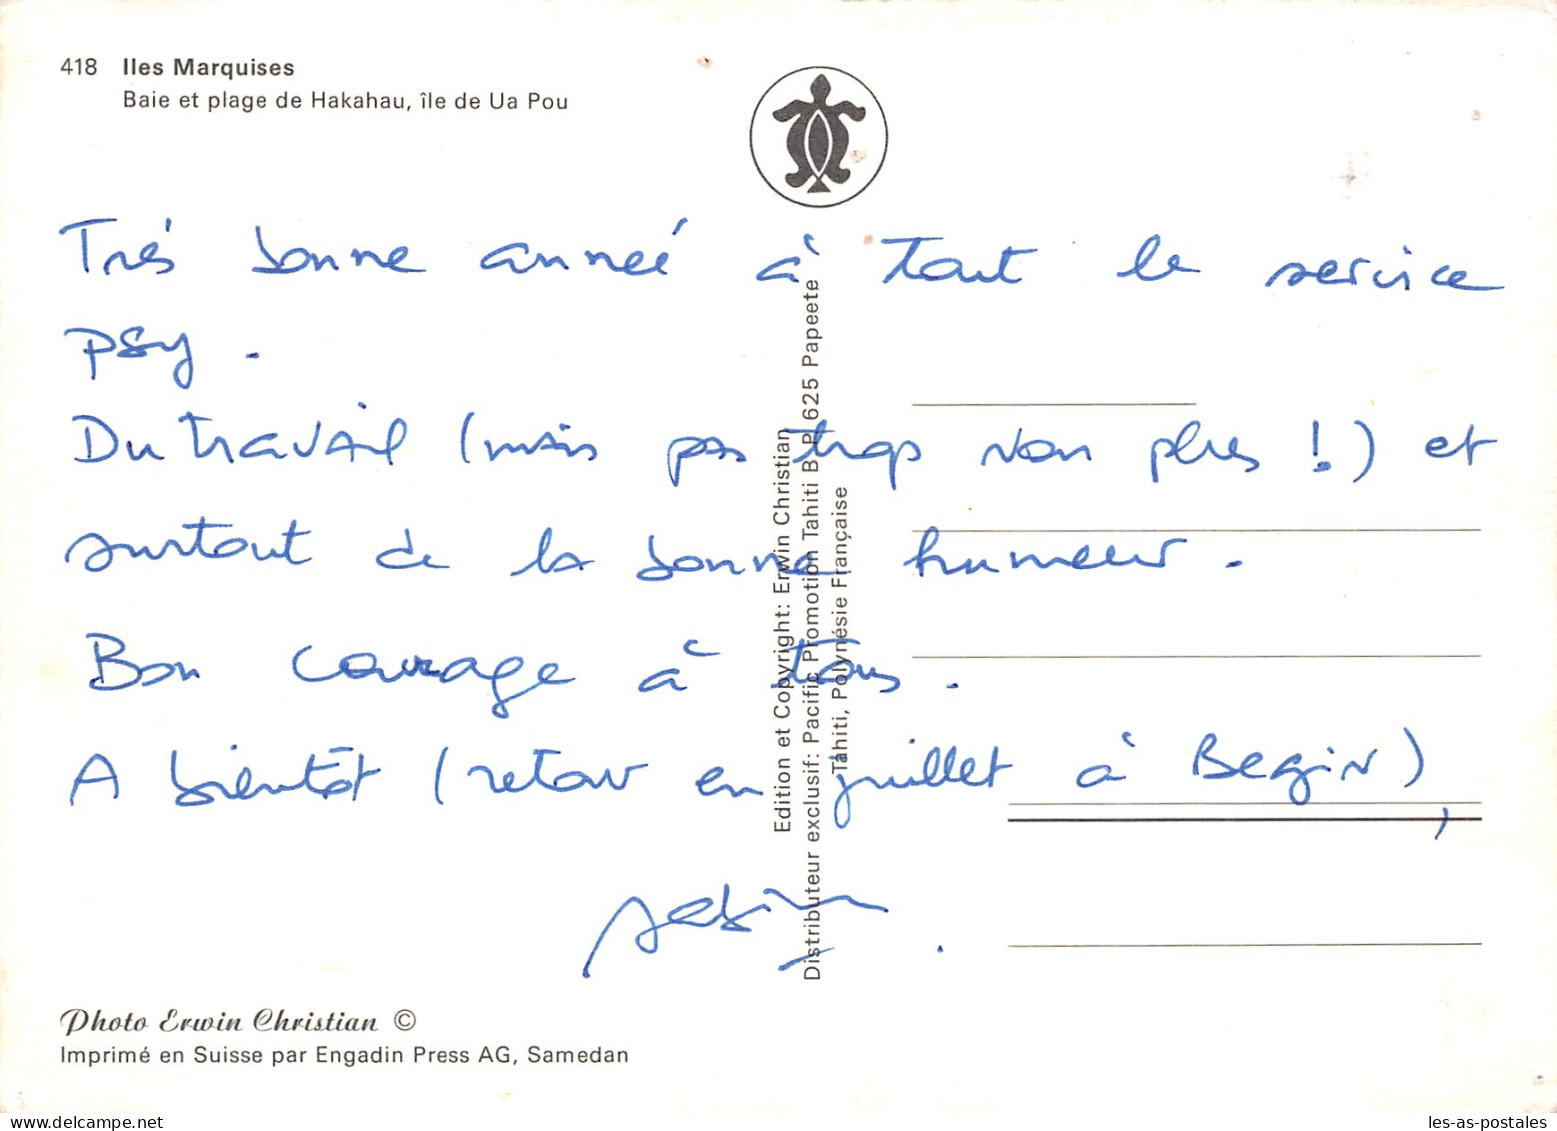 418 Iles Marquises
Baie et plage de Hakahau, île de Ua Pou
Très bonne année à tout le service
psy.
Du travail (mais pas trop non plus !) et
surtout de la bonne humeur.
Bon courage à tous.
A bientôt (retour en juillet à Begin),
Edition et Copyright: Erwin Christian
Distributeur exclusif: Pacific Promotion Tahiti B.P. 625 Papeete
Tahiti, Polynésie Française
Photo Erwin Christian ©
Imprimé en Suisse par Engadin Press AG, Samedan
les-as-postales